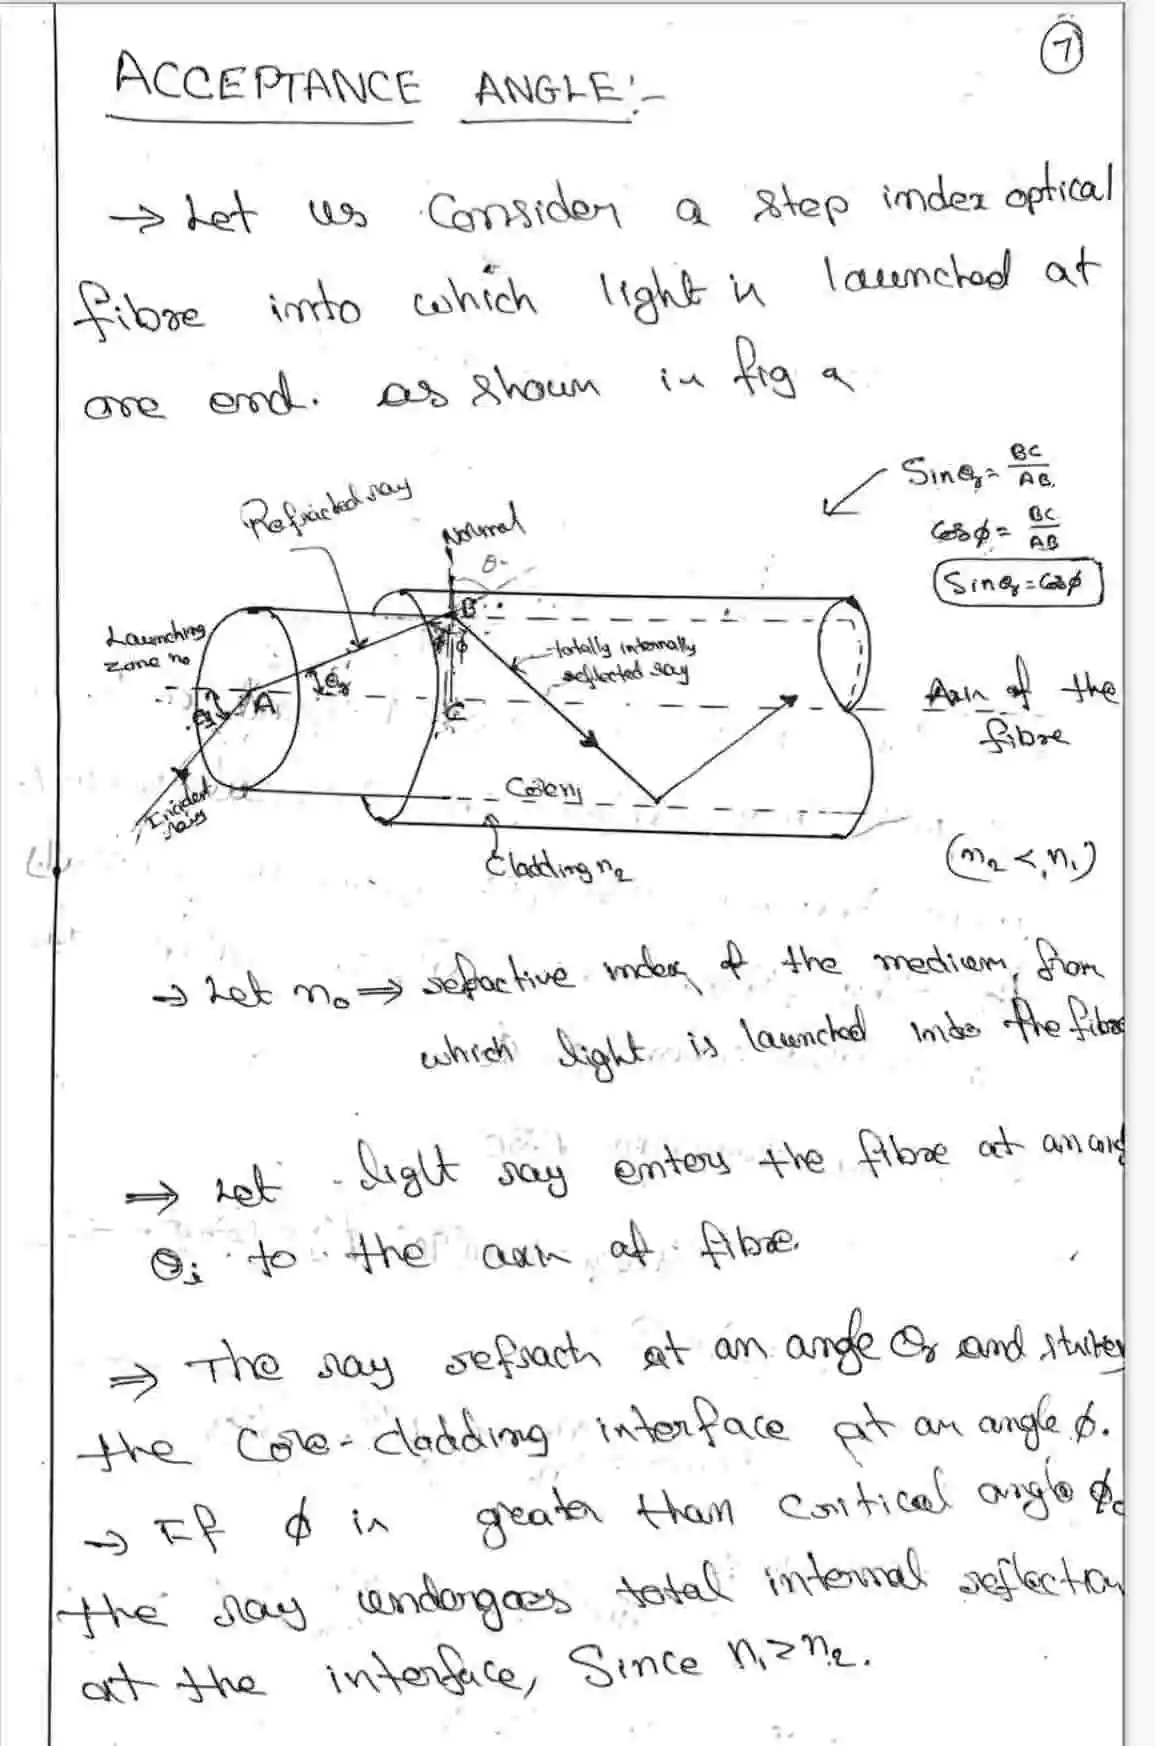 7
ACCEPTANCE ANGLE:-
→ Let us Consider a step index optical
fibre into which light is launched at
one end. as shown in fig a
Sinθr = BC/AB
Cosφ = BC/AB
Sinθr = Cosφ
Refracted ray
Normal
θ
B
Launching
zone n₀
φ φ
totally internally
reflected ray
θr
A
θi
C
Axis of the
fibre
Incident
rays
Core n₁
Cladding n₂
(n₂ < n₁)
→ Let n₀ ⇒ refractive index of the medium, from
which light is launched into the fibre
⇒ Let light ray enters the fibre at an ang
θi to the axis of fibre.
⇒ The ray refracts at an angle θr and strikes
the Core-cladding interface at an angle φ.
→ If φ is greater than critical angle φc
the ray undergoes total internal reflection
at the interface, Since n₁ > n₂.